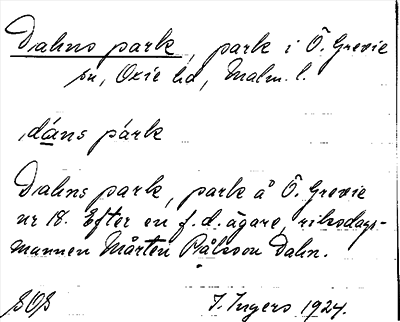 Dahns park, park i Ö. Grevie
sn, Oxie hd, Malm. l.
ˌda̲ns párk
Dahns park, park å Ö. Grevie
nr 18. Efter en f. d. ägare, riksdags-
mannen Mårten Pålsson Dahn.
I. Ingers 1927.